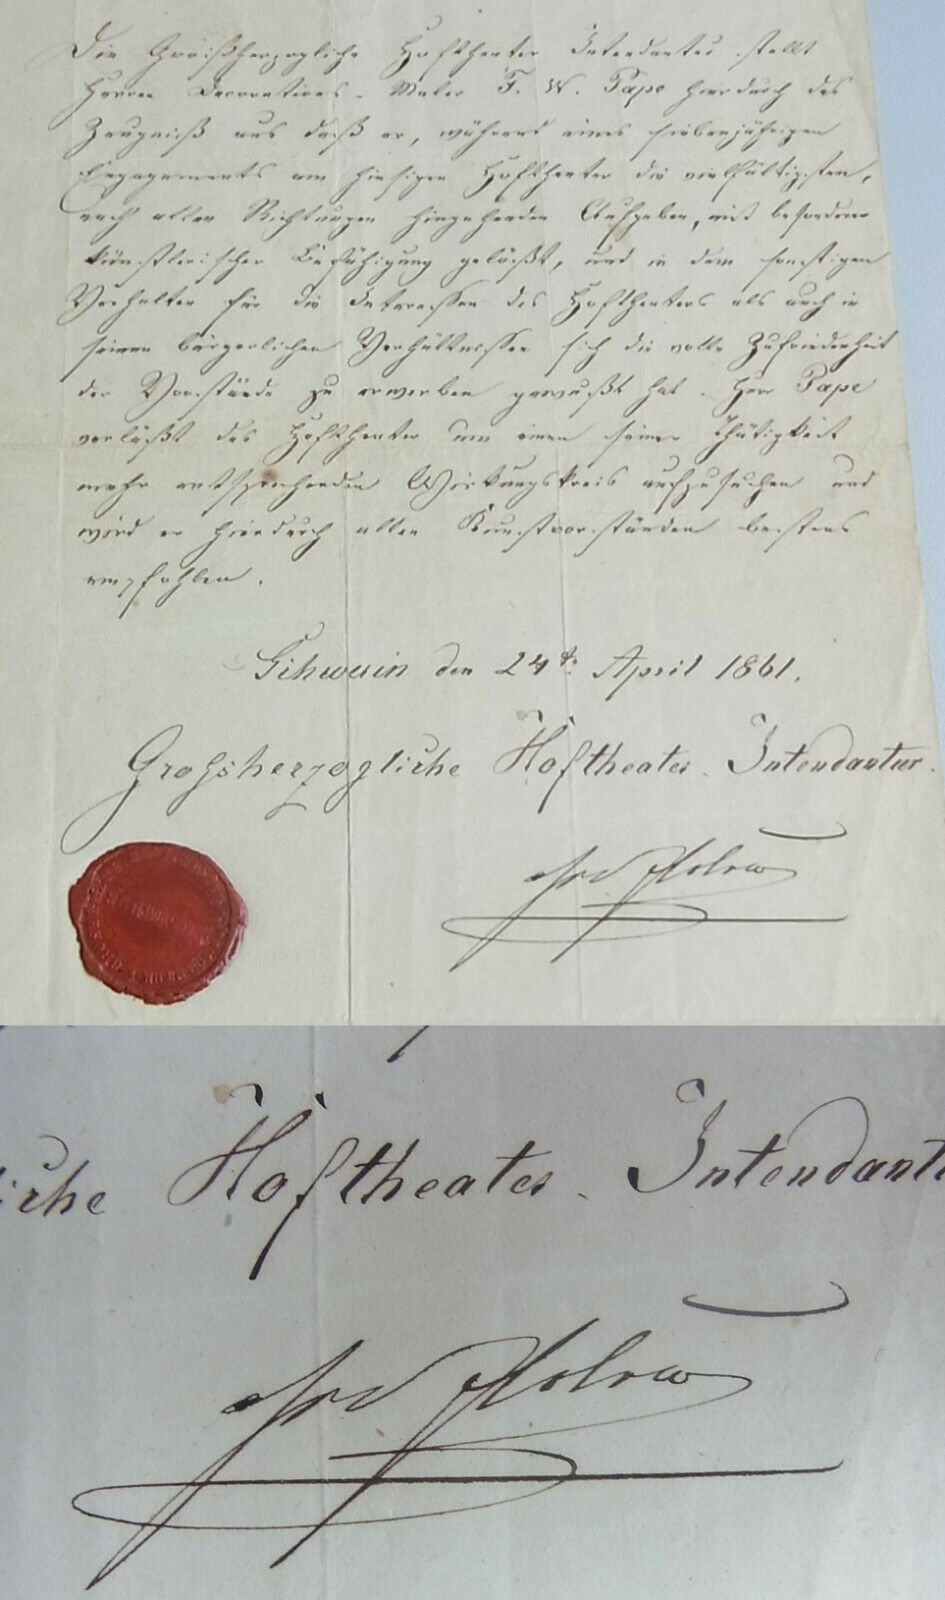 Die Großherzogliche Hoftheater Intendantur stellt
Herrn Decorations-Maler F. W. Pape hierdurch das
Zeugniß aus daß er, während eines siebenjährigen
Engagements am hiesigen Hoftheater die vielfältigsten,
nach allen Richtungen hingehenden Aufgaben, mit besonderer
künstlerischer Befähigung gelößt, und in dem sonstigen
Verhalten für die Interessen des Hoftheaters als auch in
seinen bürgerlichen Verhältnissen sich die volle Zufriedenheit
der Vorstände zu erwerben gewußt hat. Herr Pape
verläßt das Hoftheater um einen seiner Thätigkeit
mehr entsprechenden Wirkungskreis aufzusuchen und
wird er hierdurch allen Kunstvorständen bestens
empfohlen.
Schwerin den 24t. April 1861.
Großherzogliche Hoftheater-Intendantur.
liche Hoftheater-Intendant